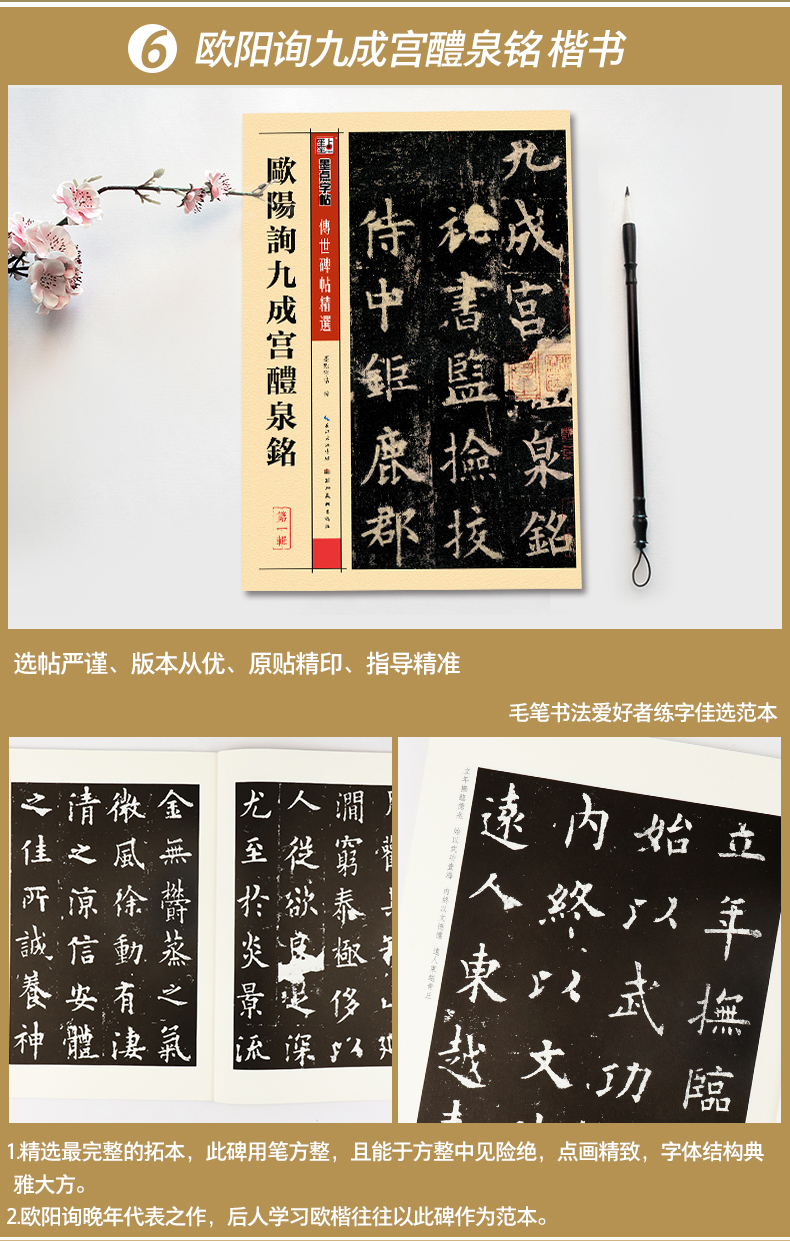 6 欧阳询九成宫醴泉铭 楷书
歐陽詢九成宫醴泉銘
第一輯
墨点字帖
傳世碑帖精選
九成宫醴泉銘
秘書監撿挍
侍中鉅鹿郡
选帖严谨、版本从优、原贴精印、指导精准
毛笔书法爱好者练字佳选范本
澗窮泰極侈以
人従欲良足深
尤至於炎景流
金無欝蒸之氣
微風徐動有凄
清之凉信安體
之佳所誠養神
立年撫臨
始以武功
内終以文
遠人東越
立年撫臨億兆 始以武功壹海 内終以文德懷 遠人東越青丘
1.精选最完整的拓本，此碑用笔方整，且能于方整中见险绝，点画精致，字体结构典
雅大方。
2.欧阳询晚年代表之作，后人学习欧楷往往以此碑作为范本。